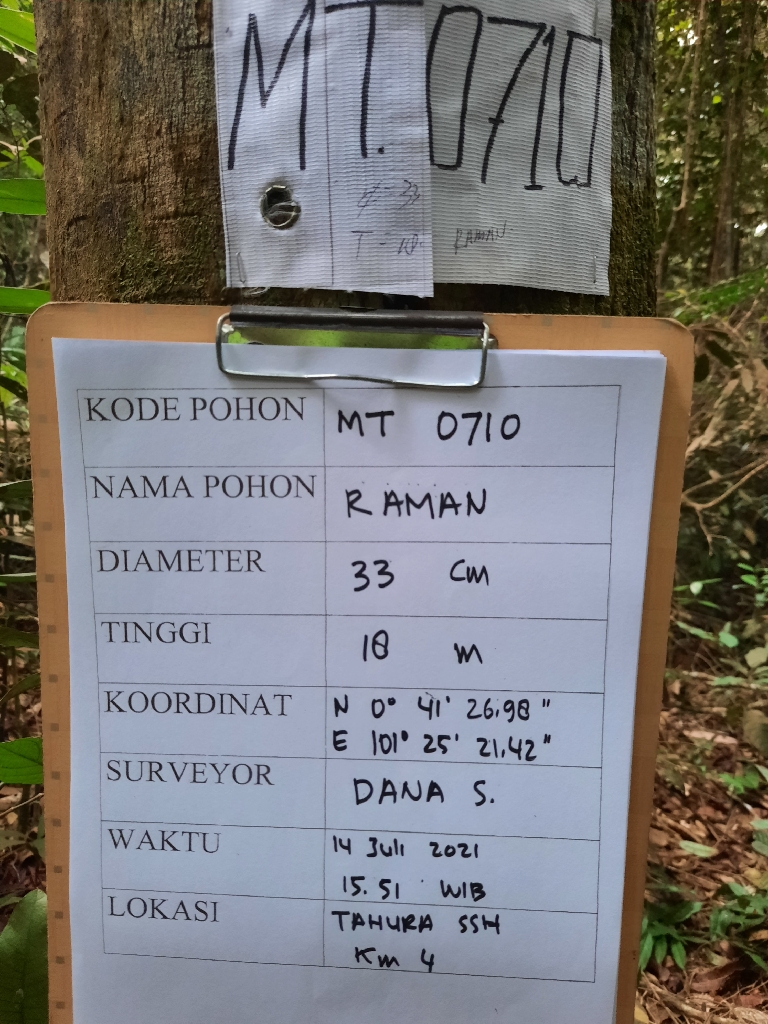 MT. 0710
RAMAN
KODE POHON MT 0710
NAMA POHON RAMAN
DIAMETER 33 Cm
TINGGI 18 m
KOORDINAT N 0° 41' 26.98"
E 101° 25' 21.42"
SURVEYOR DANA S.
WAKTU 14 Juli 2021
15.51 WIB
LOKASI TAHURA SSH
Km 4